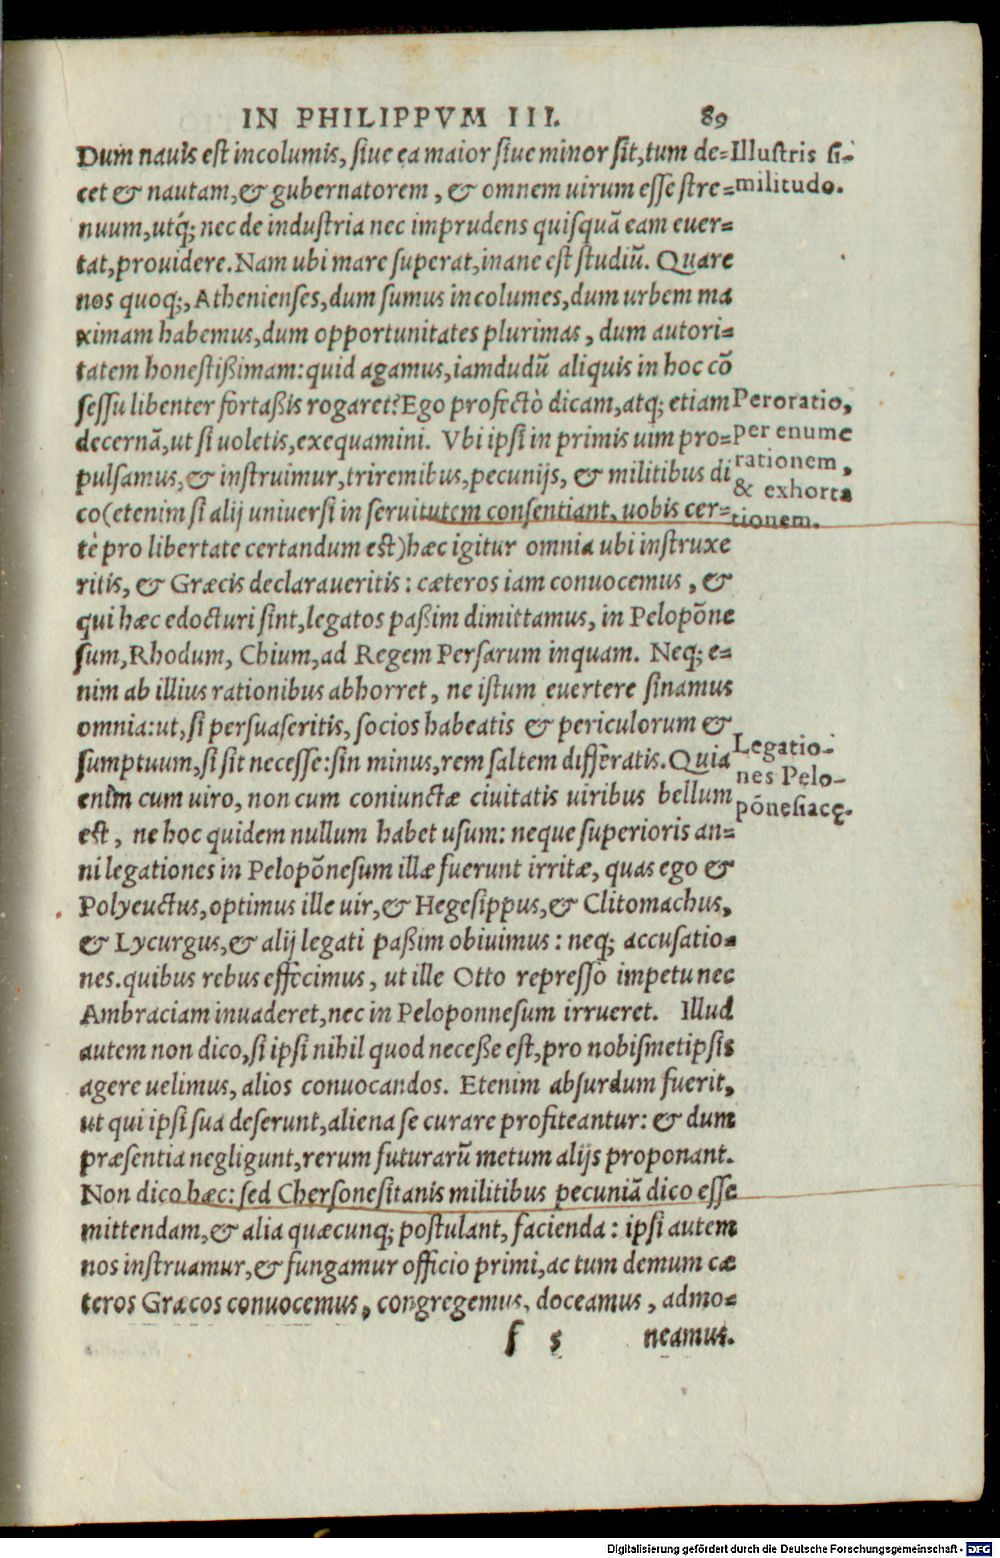 IN PHILIPPVM III. 89
Dum nauis est incolumis, siue ea maior siue minor sit, tum de=
cet & nautam, & gubernatorem, & omnem uirum esse stre=
nuum, utq́; nec de industria nec imprudens quisquã eam euer=
tat, prouidere. Nam ubi mare superat, inane est studiũ. Quare
nos quoq;, Athenienses, dum sumus incolumes, dum urbem ma
ximam habemus, dum opportunitates plurimas, dum autori=
tatem honestißimam: quid agamus, iamdudũ aliquis in hoc cõ
sessu libenter fortaßis rogaret? Ego profectò dicam, atq; etiam
decernã, ut si uoletis, exequamini. Vbi ipsi in primis uim pro=
pulsamus, & instruimur, triremibus, pecunijs, & militibus di
co (etenim si alij uniuersi in seruitutem consentiant, uobis cer=
tè pro libertate certandum est) hæc igitur omnia ubi instruxe
ritis, & Græcis declaraueritis: cæteros iam conuocemus, &
qui hæc edocturi sint, legatos paßim dimittamus, in Pelopõne
sum, Rhodum, Chium, ad Regem Persarum inquam. Neq; e=
nim ab illius rationibus abhorret, ne istum euertere sinamus
omnia: ut, si persuaseritis, socios habeatis & periculorum &
sumptuum, si sit necesse: sin minus, rem saltem differatis. Quia
enim cum uiro, non cum coniunctæ ciuitatis uiribus bellum
est, ne hoc quidem nullum habet usum: neque superioris an=
ni legationes in Pelopõnesum illæ fuerunt irritæ, quas ego &
Polyeuctus, optimus ille uir, & Hegesippus, & Clitomachus,
& Lycurgus, & alij legati paßim obiuimus: neq; accusatio=
nes. quibus rebus effecimus, ut ille Otto represso impetu nec
Ambraciam inuaderet, nec in Peloponnesum irrueret. Illud
autem non dico, si ipsi nihil quod neceße est, pro nobismetipsis
agere uelimus, alios conuocandos. Etenim absurdum fuerit,
ut qui ipsi sua deserunt, aliena se curare profiteantur: & dum
præsentia negligunt, rerum futurarũ metum alijs proponant.
Non dico hæc: sed Chersonesitanis militibus pecuniã dico esse
mittendam, & alia quæcunq; postulant, facienda: ipsi autem
nos instruamur, & fungamur officio primi, ac tum demum cæ
teros Græcos conuocemus, congregemus, doceamus, admo=
f 5 neamus.
Illustris si-
militudo.
Peroratio,
per enume
rationem,
& exhorta
tionem.
Legatio-
nes Pelo-
põnesiacę.
Digitalisierung gefördert durch die Deutsche Forschungsgemeinschaft - DFG